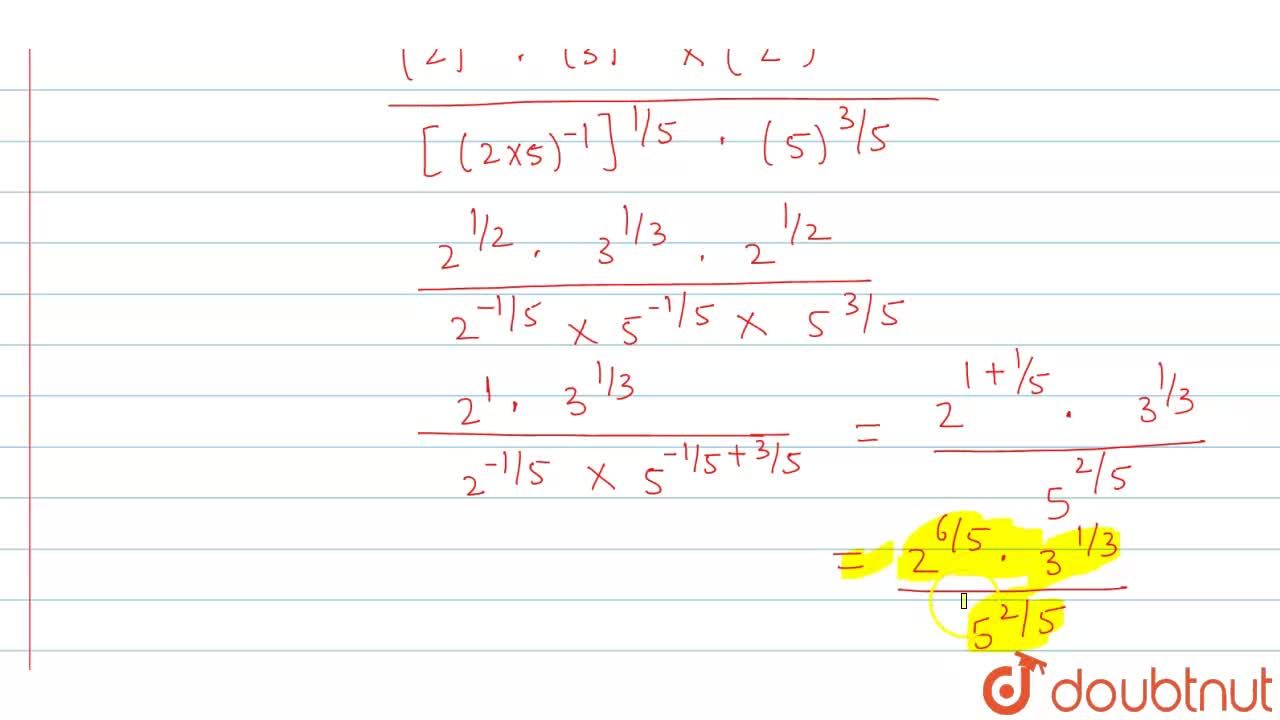 [(2×5)^-1]^1/5 · (5)^3/5
2^1/2 · 3^1/3 · 2^1/2
2^-1/5 × 5^-1/5 × 5^3/5
2^1 · 3^1/3
2^-1/5 × 5^-1/5+3/5
= 2^1+1/5 · 3^1/3
5^2/5
= 2^6/5 · 3^1/3
5^2/5
doubtnut